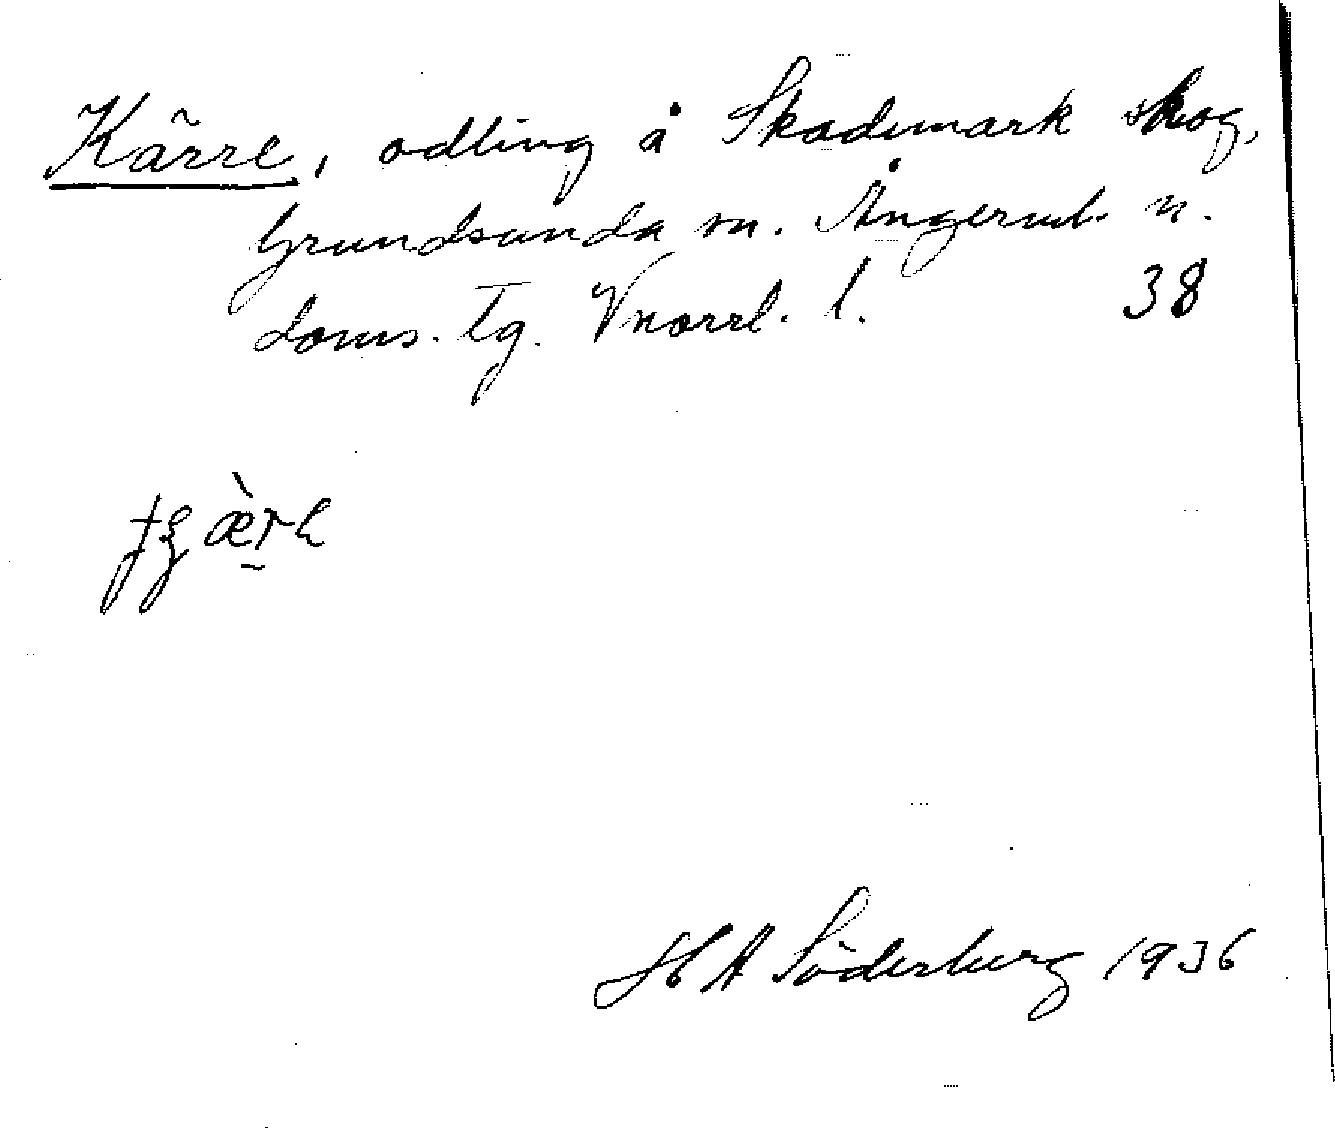 Kärre, odling å Skademark skog,
Grundsunda sn. Ångerml. n.
doms. tg. Vnorrl. l. 38
H A Söderberg 1936